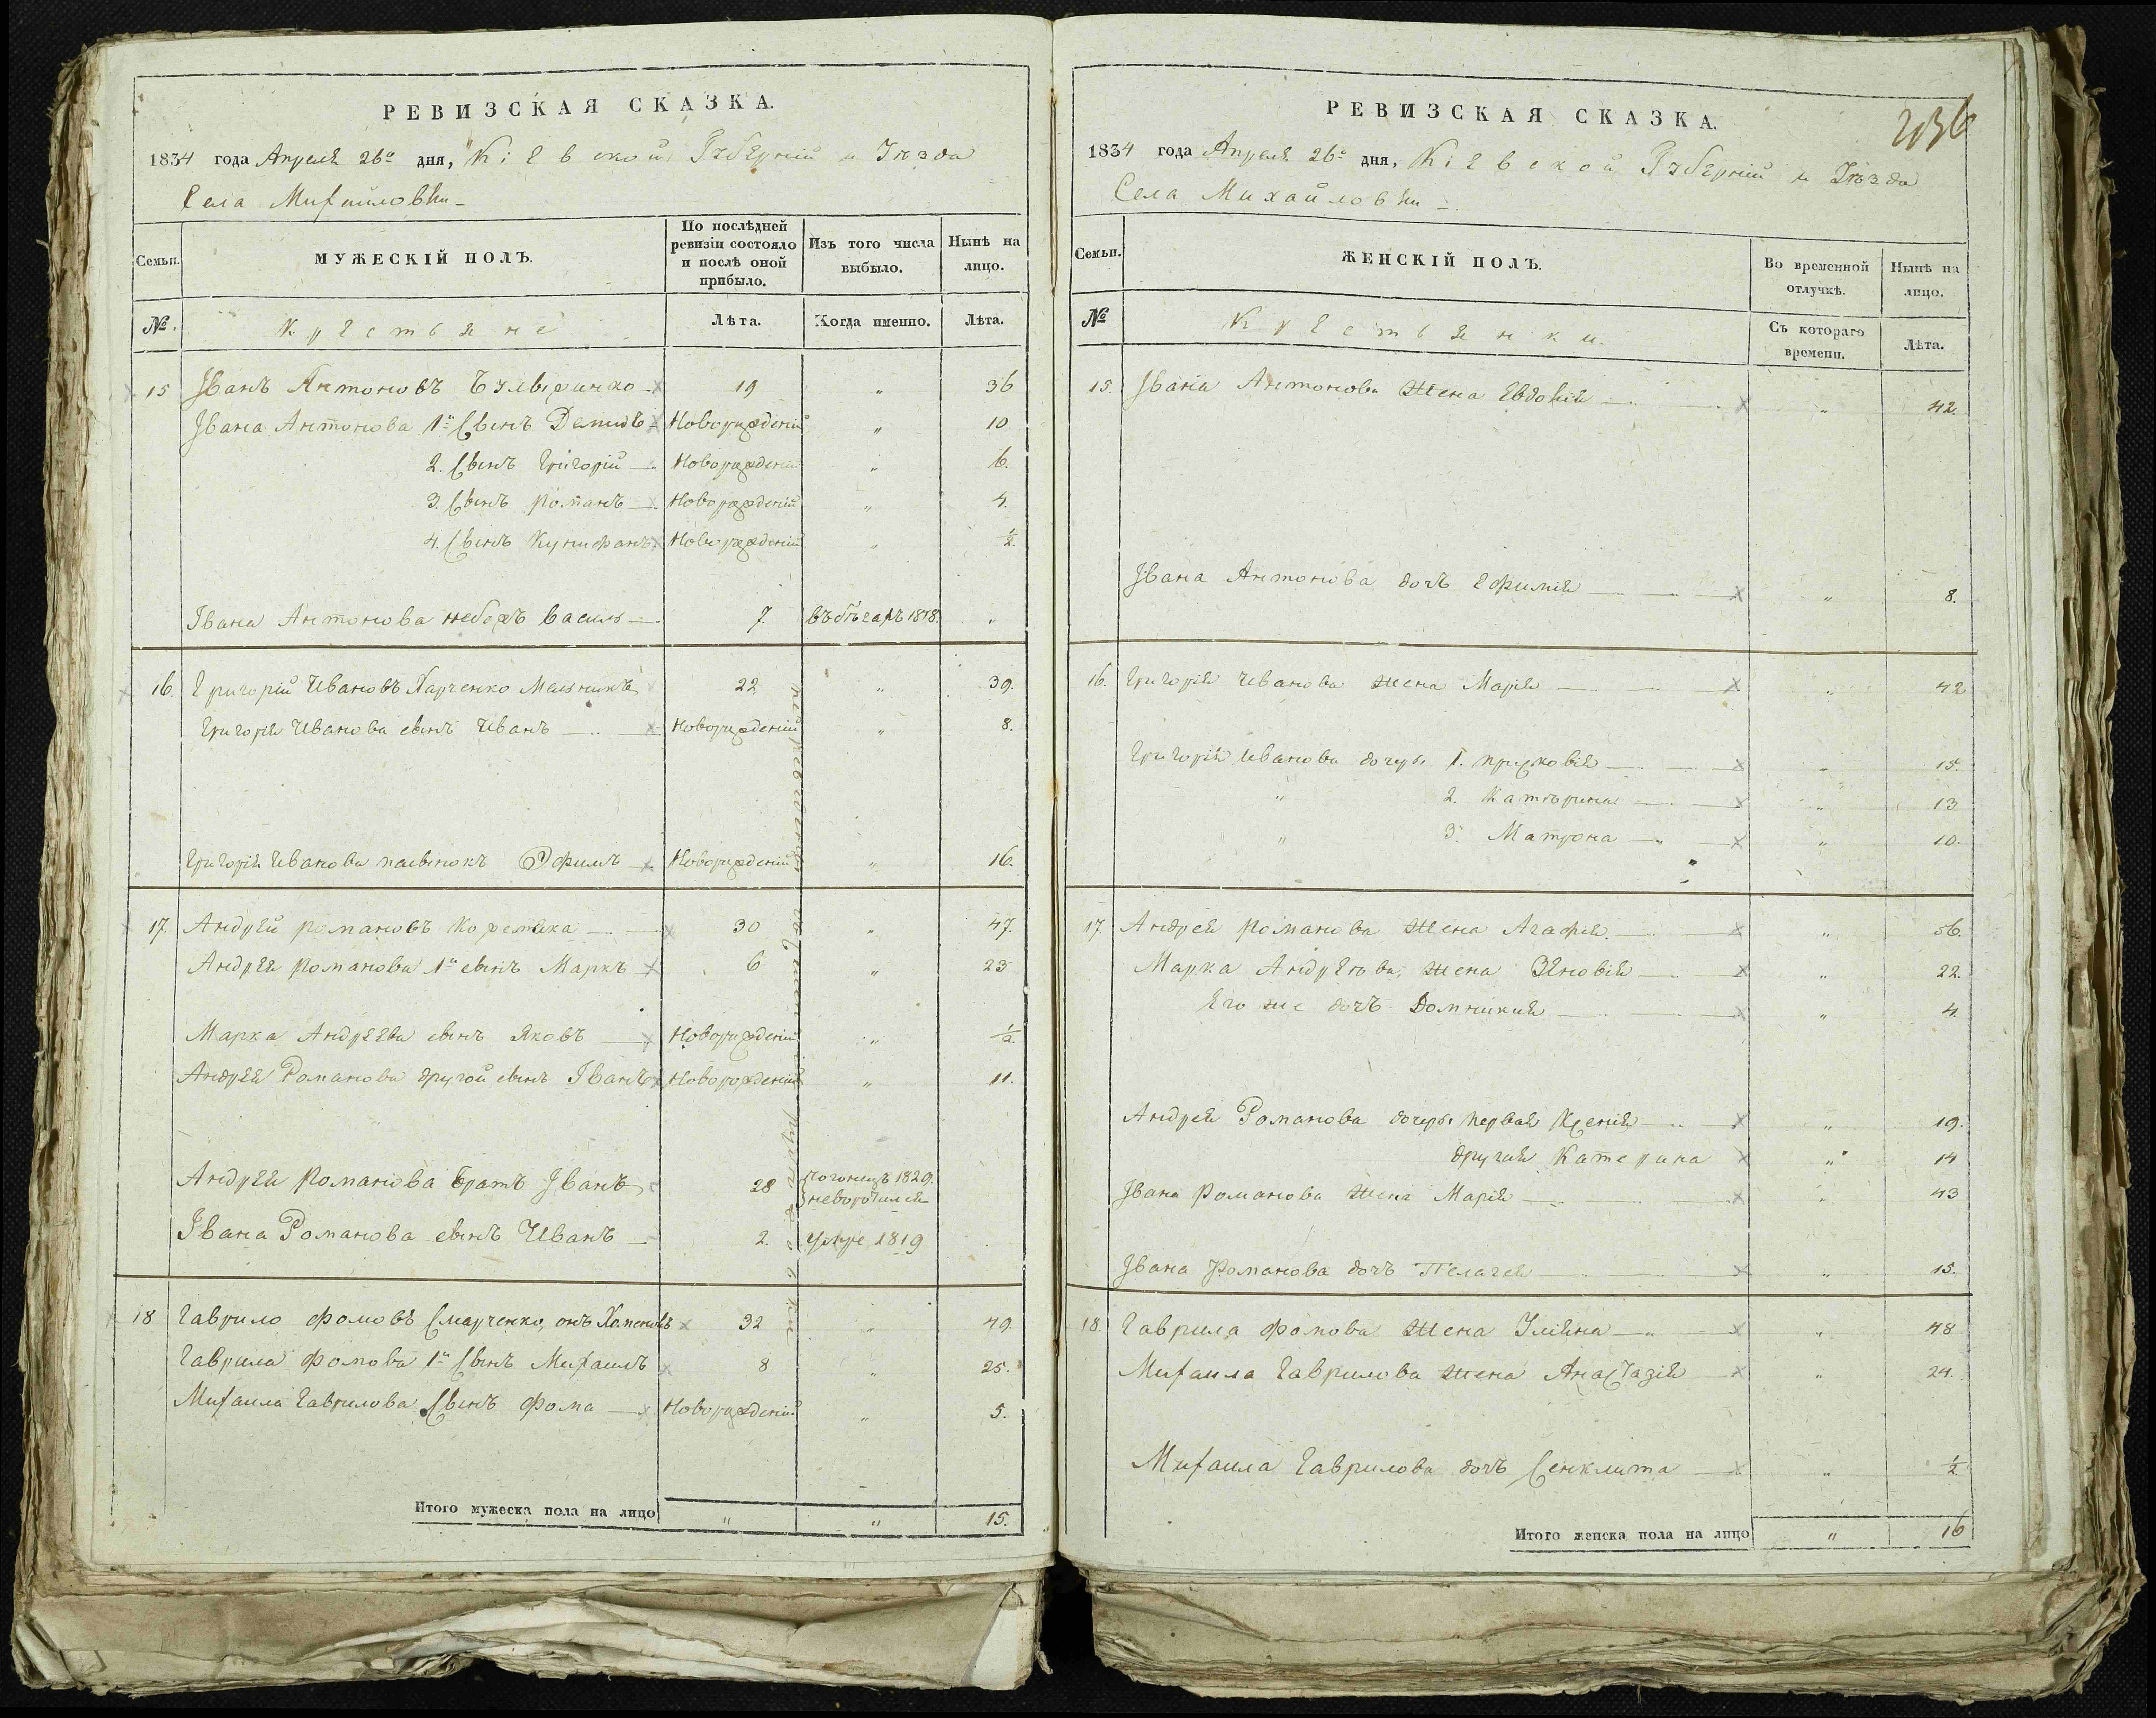 РЕВИЗСКАЯ СКАЗКА.
1834 года Апреля 26го дня, Кіевской Губерніи и Уезда
Села Михайловки
Семьи.
МУЖЕСКІЙ ПОЛЪ.
По послѣдней ревизіи состояло и послѣ оной прибыло.
Изъ того числа выбыло.
Нынѣ на лицо.
№.
Крестьяне
Лѣта.
Когда именно.
Лѣта.
15 Іванъ Антоновъ 19 " 36
Івана Антонова 1й Сынъ Демидъ Новорожденій " 10
2. Сынъ Григорій Новорожденій " 6.
3. Сынъ Романъ Новорожденій " 4.
4. Сынъ Новорожденій " ½.
Івана Антонова небожъ Василь 7. въ бѣгахъ 1818.
16. Григорій Ивановъ Харченко Мельникъ 22 " 39.
Григорія Иванова сынъ Иванъ Новорожденій " 8.
Григорія Иванова пасынокъ Ефимъ Новорожденій " 16.
17. Андрей Романовъ 30 " 47.
Андрея Романова 1й сынъ Маркъ 6 " 23
Марка Андреева сынъ Яковъ Новорожденій " ½.
Андрея Романова другой сынъ Іванъ Новорожденій " 11.
Андрея Романова братъ Іванъ 28 1829. неворотился
Івана Романова сынъ Иванъ 2. умре 1819
18 Гаврило Фомовъ онъ 32 " 49.
Гаврила Фомова 1й Сынъ Михаилъ 8 " 25.
Михаила Гаврилова Сынъ Фома Новорожденій " 5.
Итого мужеска пола на лицо " " 15.
236
РЕВИЗСКАЯ СКАЗКА.
1834 года Апреля 26го дня, Кіевской Губерніи и Уезда
Села Михайловки
Семьи.
ЖЕНСКІЙ ПОЛЪ.
Во временной отлучкѣ.
Нынѣ на лицо.
№
Крестьянки.
Съ котораго времени.
Лѣта.
15. Івана Антонова жена Евдокія " 42.
Івана Антонова дочь Ефимія " 8.
16. Григорія Иванова жена Марія " 42
Григорія Иванова дочери 1. Прасковія " 15.
" 2. Катерина " 13
" 3. Матрона " 10.
17. Андрея Романова жена Агафія " 56.
Марка Андреева жена Зеновія " 22.
Его же дочъ Домникия " 4.
Андрея Романова дочери первая Ксенія " 19.
другая Катерина " 14
Івана Романова жена Марія " 43
Івана Романова дочъ Пелагея " 15.
18. Гаврила Фомова жена Уліяна " 48
Михаила Гаврилова жена Анастазія " 24.
Михаила Гаврилова дочъ Сенклита " ½
Итого женска пола на лицо " 16